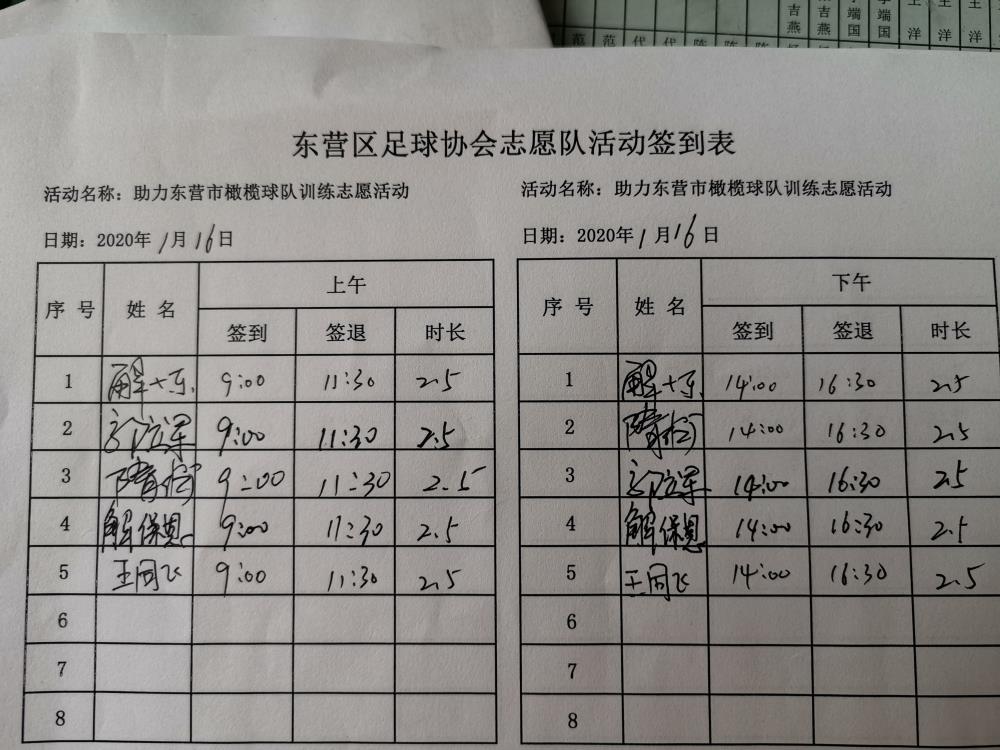 吉 吉 端 端 王 王 王
燕 燕 国 国 洋 洋 洋
范 范 代 代 陈 陈 陈
东营区足球协会志愿队活动签到表
活动名称：助力东营市橄榄球队训练志愿活动
日期：2020年1月16日
序号 姓名 上午
签到 签退 时长
1 9:00 11:30 2.5
2 9:00 11:30 2.5
3 9:00 11:30 2.5
4 解保恩 9:00 11:30 2.5
5 王同飞 9:00 11:30 2.5
6
7
8
活动名称：助力东营市橄榄球队训练志愿活动
日期：2020年1月16日
序号 姓名 下午
签到 签退 时长
1 14:00 16:30 2.5
2 14:00 16:30 2.5
3 14:00 16:30 2.5
4 解保恩 14:00 16:30 2.5
5 王同飞 14:00 16:30 2.5
6
7
8